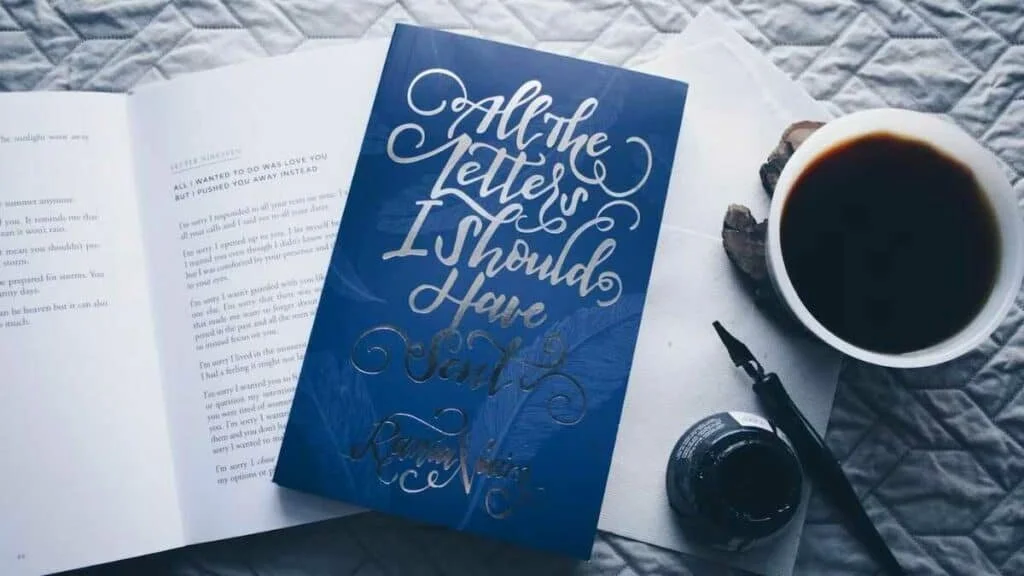 he sunlight went away
summer anymore.
you. It reminds me that
it won't rain.
mean you shouldn't pre-
storm.
prepared for storms. You
nny days.
be heaven but it can also
much.
LETTER NINETEEN
ALL I WANTED TO DO WAS LOVE YOU
BUT I PUSHED YOU AWAY INSTEAD
I'm sorry I responded to all your texts on time. I
all your calls and I said yes to all your dates.
I'm sorry I opened up to you. I let myself be
I wanted you even though I didn't know you
but I was comforted by your presence and
in your eyes.
I'm sorry I wasn't guarded with you like
one else. I'm sorry that there was
that made me want to forget about
posed in the past and all the men
to instead focus on you.
I'm sorry I lived in the moment
I had a feeling it might not la
I'm sorry I wanted you to
or question my intention
you were tired of women
you. I'm sorry I wanted
them and you don't ha
sorry I wanted to
I'm sorry I
my options or
All The
Letters
I Should
Have
Sent
Rania Naim